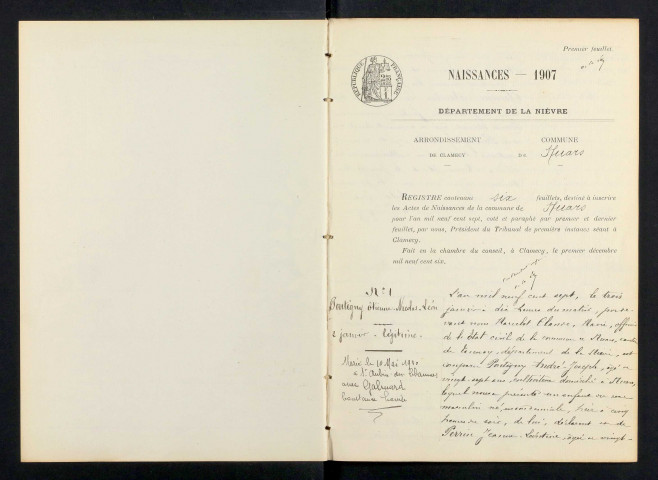 Premier feuillet.
RÉPUBLIQUE FRANÇAISE
NAISSANCES — 1907
DÉPARTEMENT DE LA NIÈVRE
ARRONDISSEMENT
DE CLAMECY
COMMUNE
DE Huars
REGISTRE contenant six feuillets, destiné à inscrire
les Actes de Naissances de la commune de Huars
pour l'an mil neuf cent sept, coté et paraphé par premier et dernier
feuillet, par nous, Président du Tribunal de première instance séant à
Clamecy.
Fait en la chambre du conseil, à Clamecy, le premier décembre
mil neuf cent six.
N° 1
Pautigny Etienne Nicolas Léon
2 janvier - légitime.
Marié le 10 Mai 1930
à St Aubin des Chaumes
avec Galimard
L'an mil neuf cent sept, le trois
janvier dix heures du matin, par de-
vant nous Maire, officier
de l'Etat civil de la commune de
de Tannay, département de la Nièvre, est
comparu André Joseph, âgé de
vingt-sept ans, cultivateur domicilié à
lequel nous a présenté un enfant du sexe
masculin né
heures du soir, de lui, déclarant et de
Perrin Jeanne âgée de vingt-